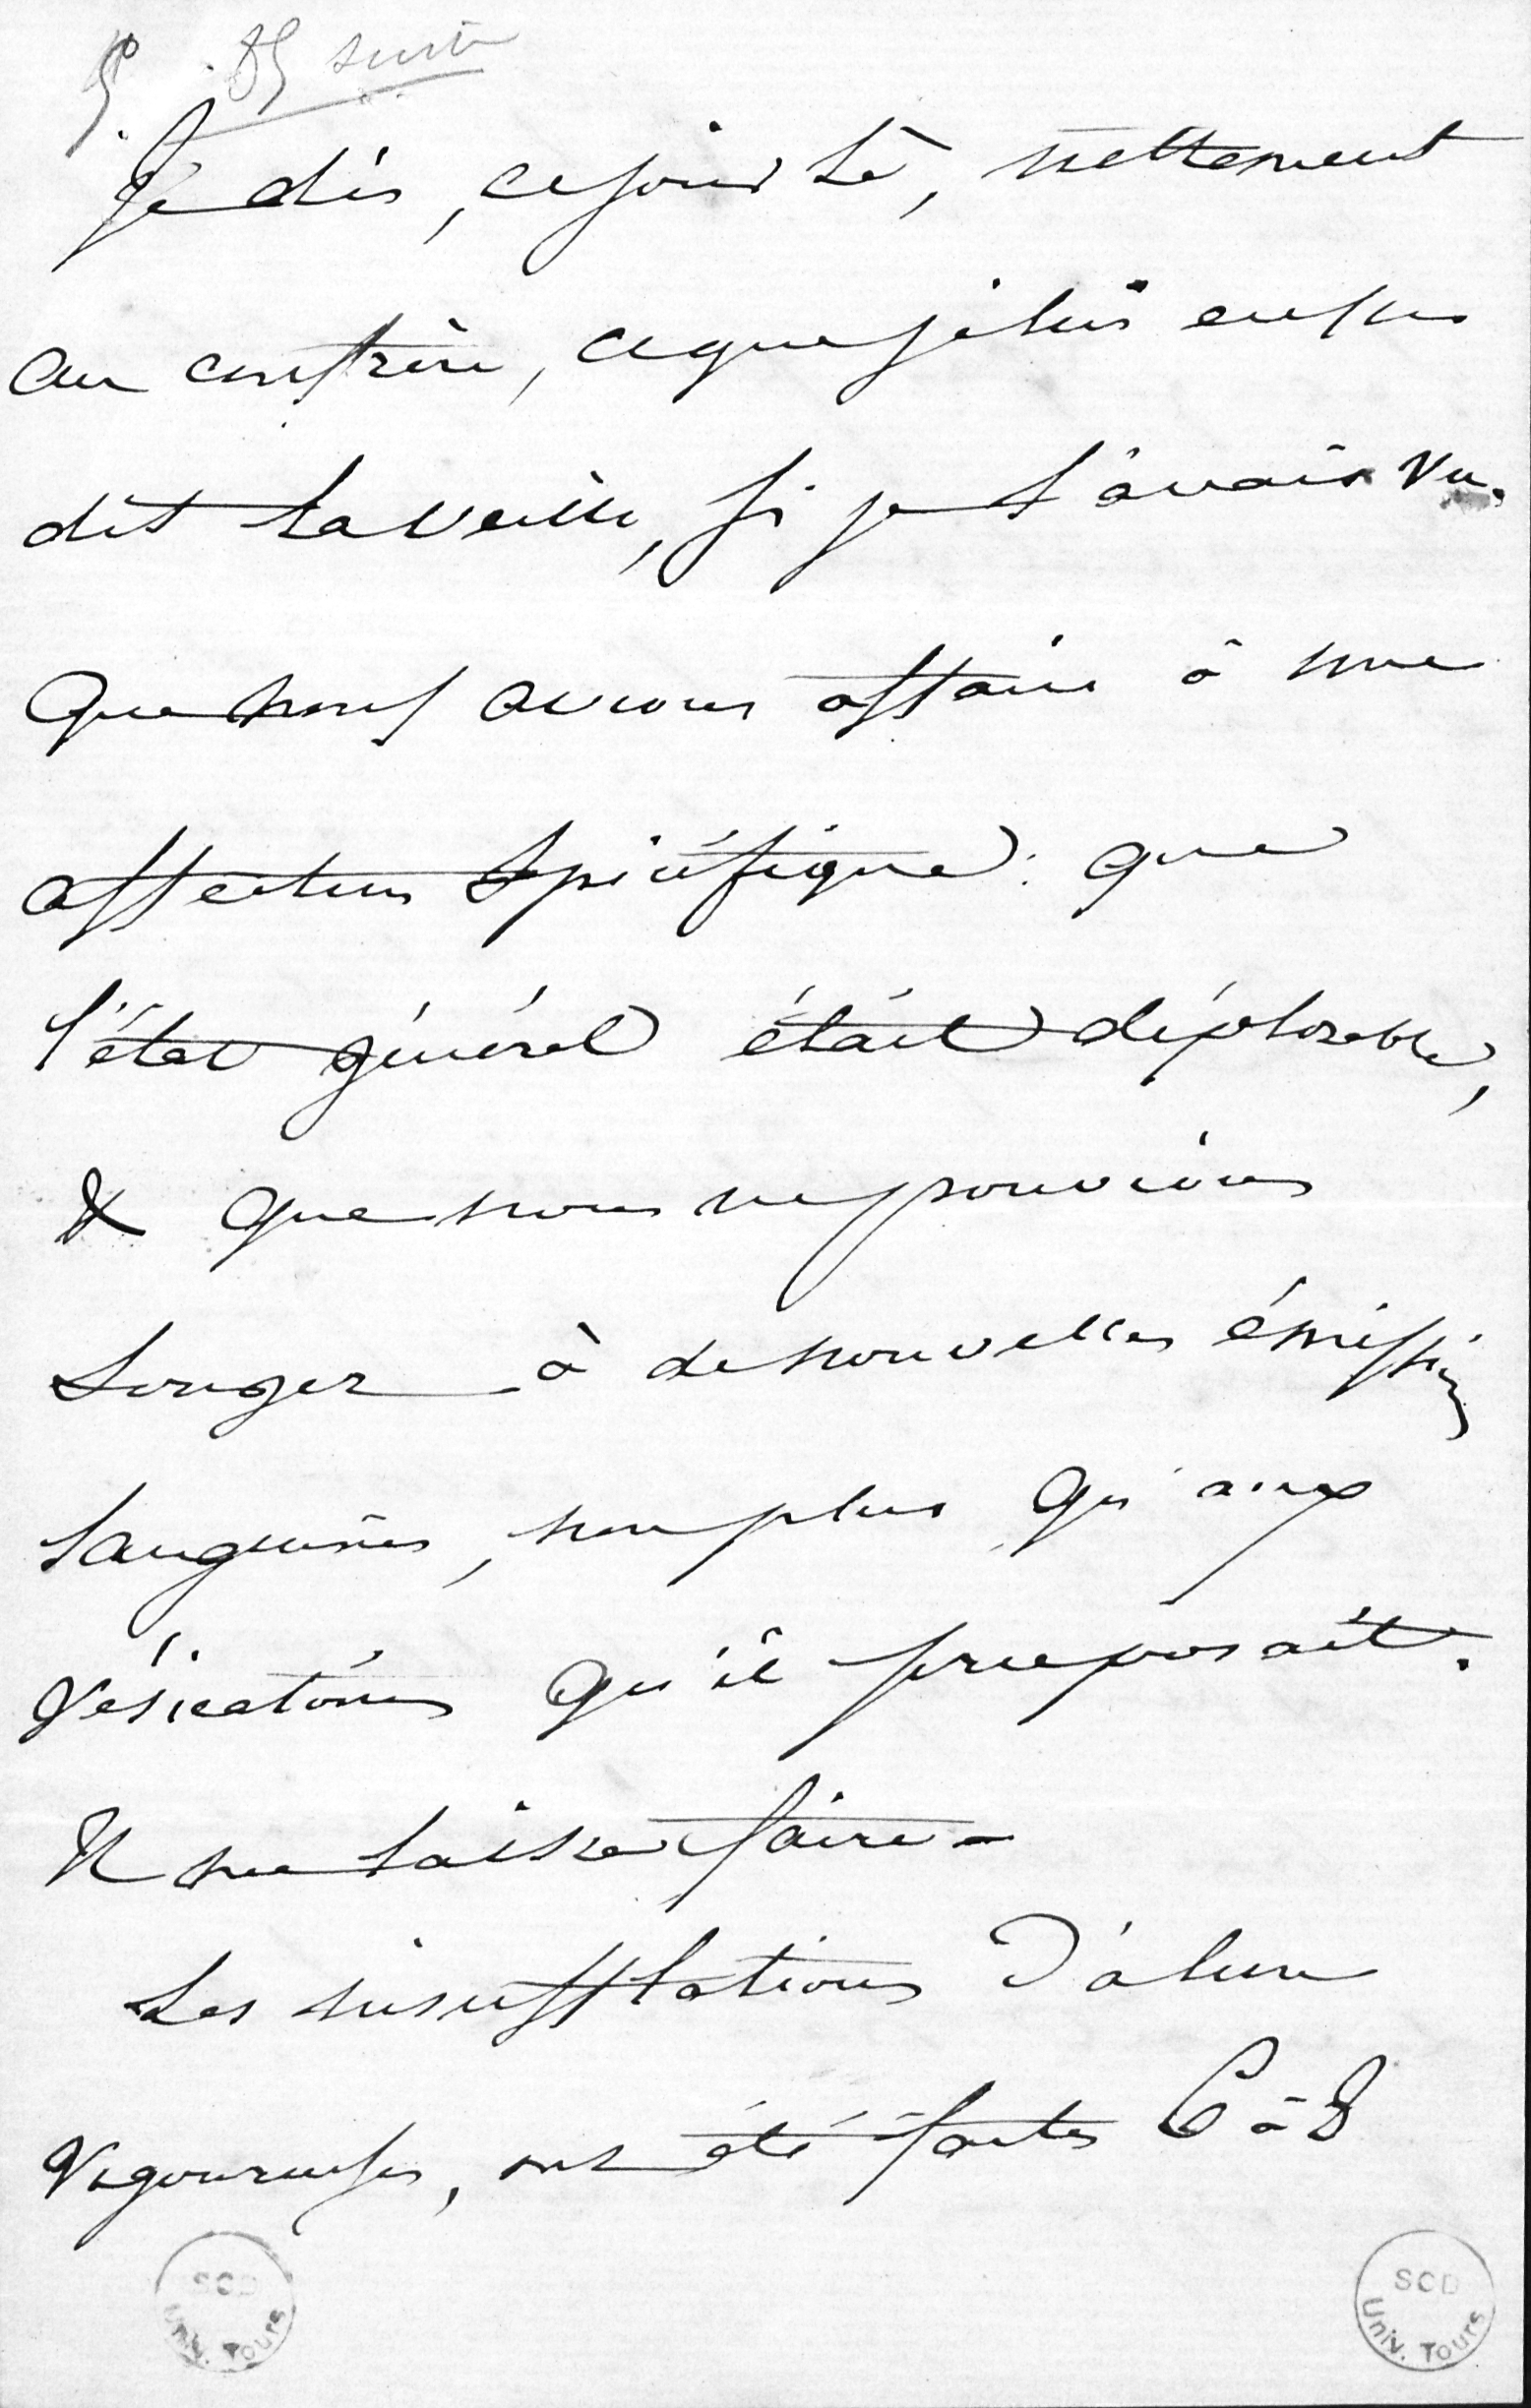 85 suite
Je dis, ce jour là, nettement
au confrère, ce que je lui eusse
dit la veille, si je l'avais vu.
Que nous avions affaire à une
affection spécifique : que
l'état général était déplorable,
& que nous ne pouvions
songer à de nouvelles émissions
sanguines, non plus qu'aux
vésicatoires qu'il proposait.
Il me laissa faire -
Les insufflations d'alun
vigoureuses, ont été faites 6 à 8
SCD Univ. Tours
SCD Univ. Tours